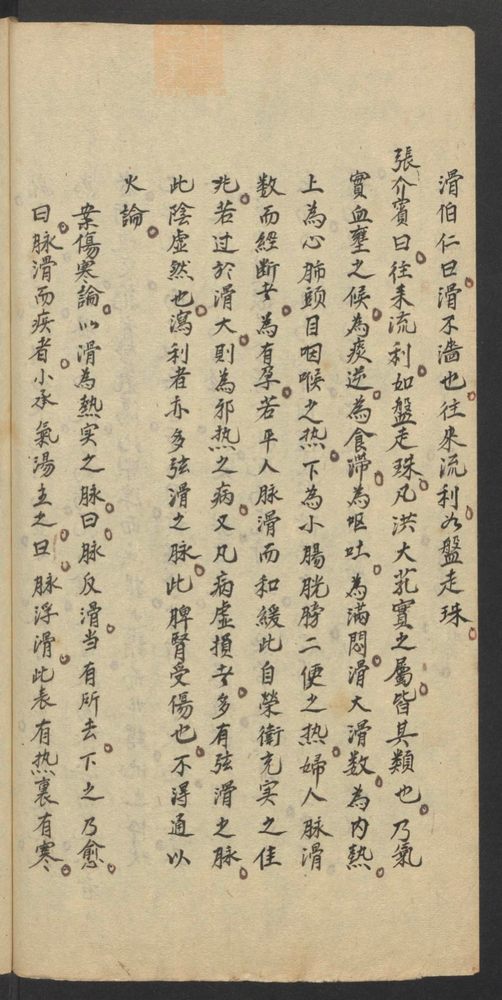 滑伯仁曰滑不濇也往來流利如盤走珠
張介賓曰往来流利如盤走珠凡洪大芤實之屬皆其類也乃氣
實血壅之候為痰逆為食滯為嘔吐為滿悶滑大滑数為内熱
上為心肺頭目咽喉之热下為小腸胱膀二便之热婦人脉滑
数而經断者為有孕若平人脉滑而和緩此自榮衛充实之佳
兆若过於滑大則為邪热之病又凡病虛損者多有弦滑之脉
此陰虛然也瀉利者亦多弦滑之脉此脾腎受傷也不得通以
火論
案傷寒論以滑為熱实之脉曰脉反滑当有所去下之乃愈
曰脉滑而疾者小承氣湯主之曰脉浮滑此表有热裏有寒